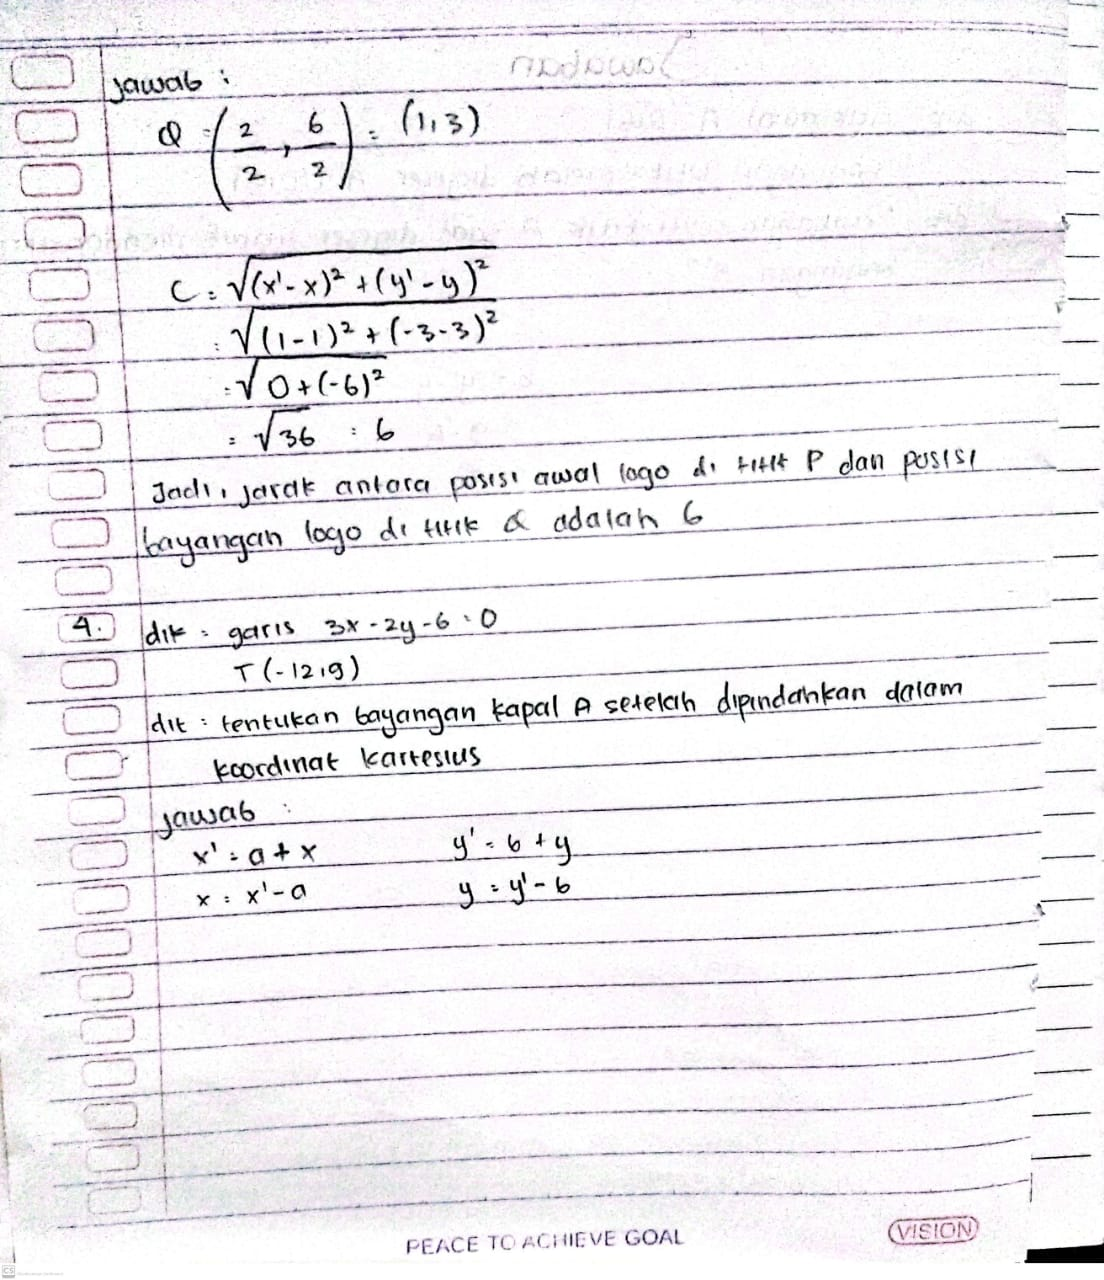 Jawab :
Q = (2/2 , 6/2) = (1,3)
C = √(x'-x)² + (y'-y)²
= √(1-1)² + (-3-3)²
= √0+(-6)²
= √36 = 6
Jadi, jarak antara posisi awal logo di titik P dan posisi
bayangan logo di titik Q adalah 6
4. dik : garis 3x-2y-6=0
T(-12,9)
dit : tentukan bayangan kapal A setelah dipindahkan dalam
koordinat kartesius
jawab :
x' = a + x y' = b + y
x = x' - a y = y' - b
PEACE TO ACHIEVE GOAL
VISION
CS